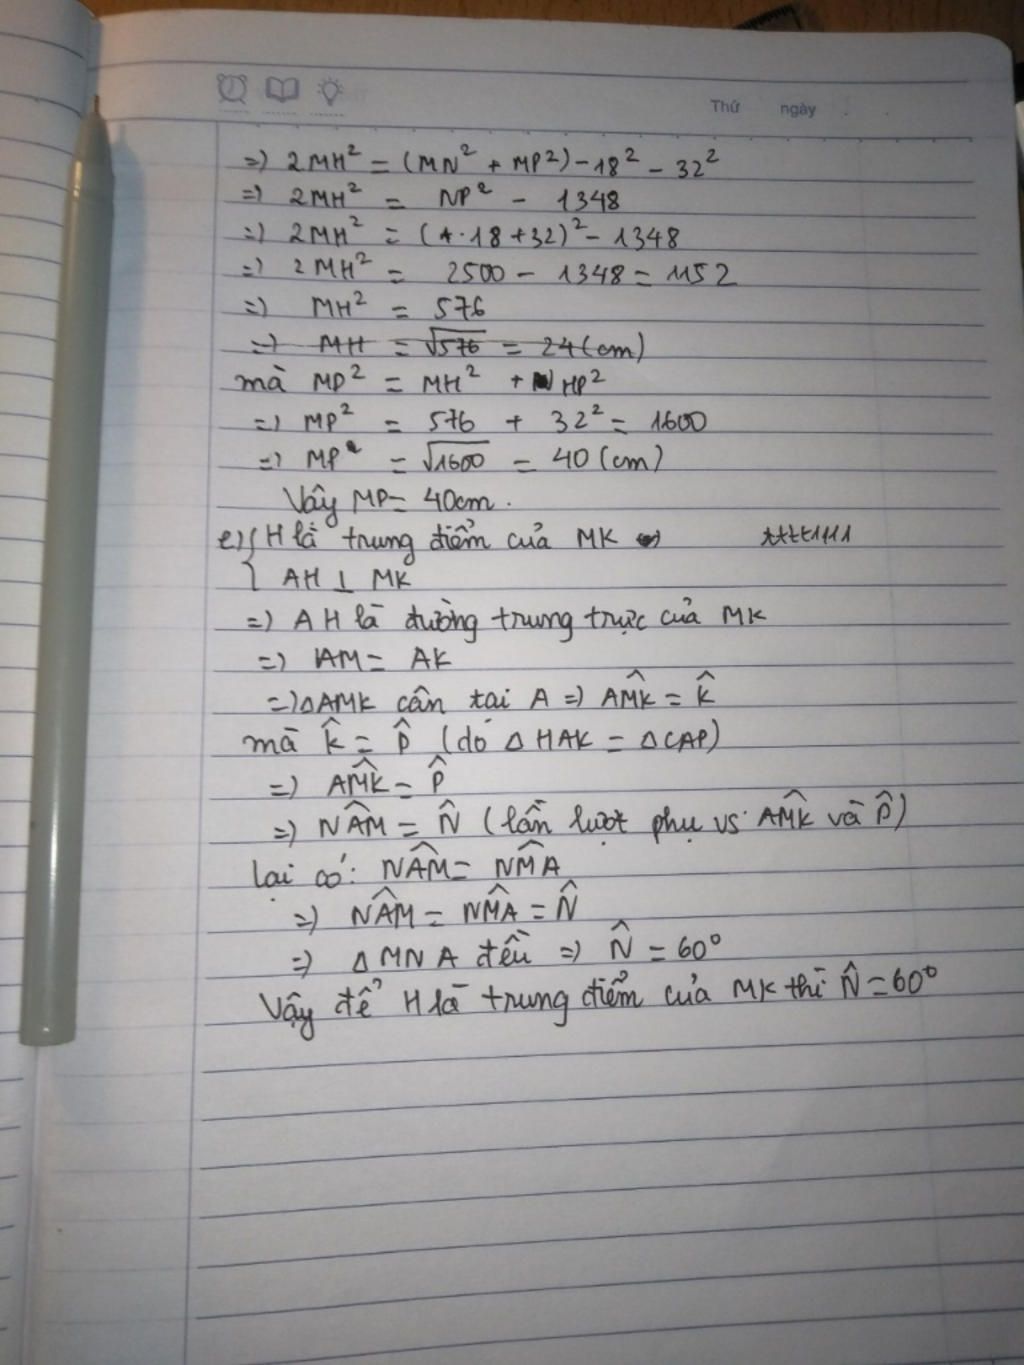 Thứ ngày
=) 2MH² = (MN² + MP²) - 18² - 32²
=) 2MH² = NP² - 1348
=) 2MH² = (18+32)² - 1348
=) 2MH² = 2500 - 1348 = 1152
=) MH² = 576
=) MH = √576 = 24 (cm)
mà MP² = MH² + HP²
=) MP² = 576 + 32² = 1600
=) MP = √1600 = 40 (cm)
Vậy MP = 40cm.
e) { H là trung điểm của MK
{ AH ⊥ MK
=) AH là đường trung trực của MK
=) AM = AK
=) △AMK cân tại A =) AM̂K = K̂
mà K̂ = P̂ (do △HAK = △CAP)
=) AM̂K = P̂
=) NÂM = N̂ (lần lượt phụ vs AM̂K và P̂)
lại có: NÂM = NM̂A
=) NÂM = NM̂A = N̂
=) △MNA đều =) N̂ = 60°
Vậy để H là trung điểm của MK thì N̂ = 60°